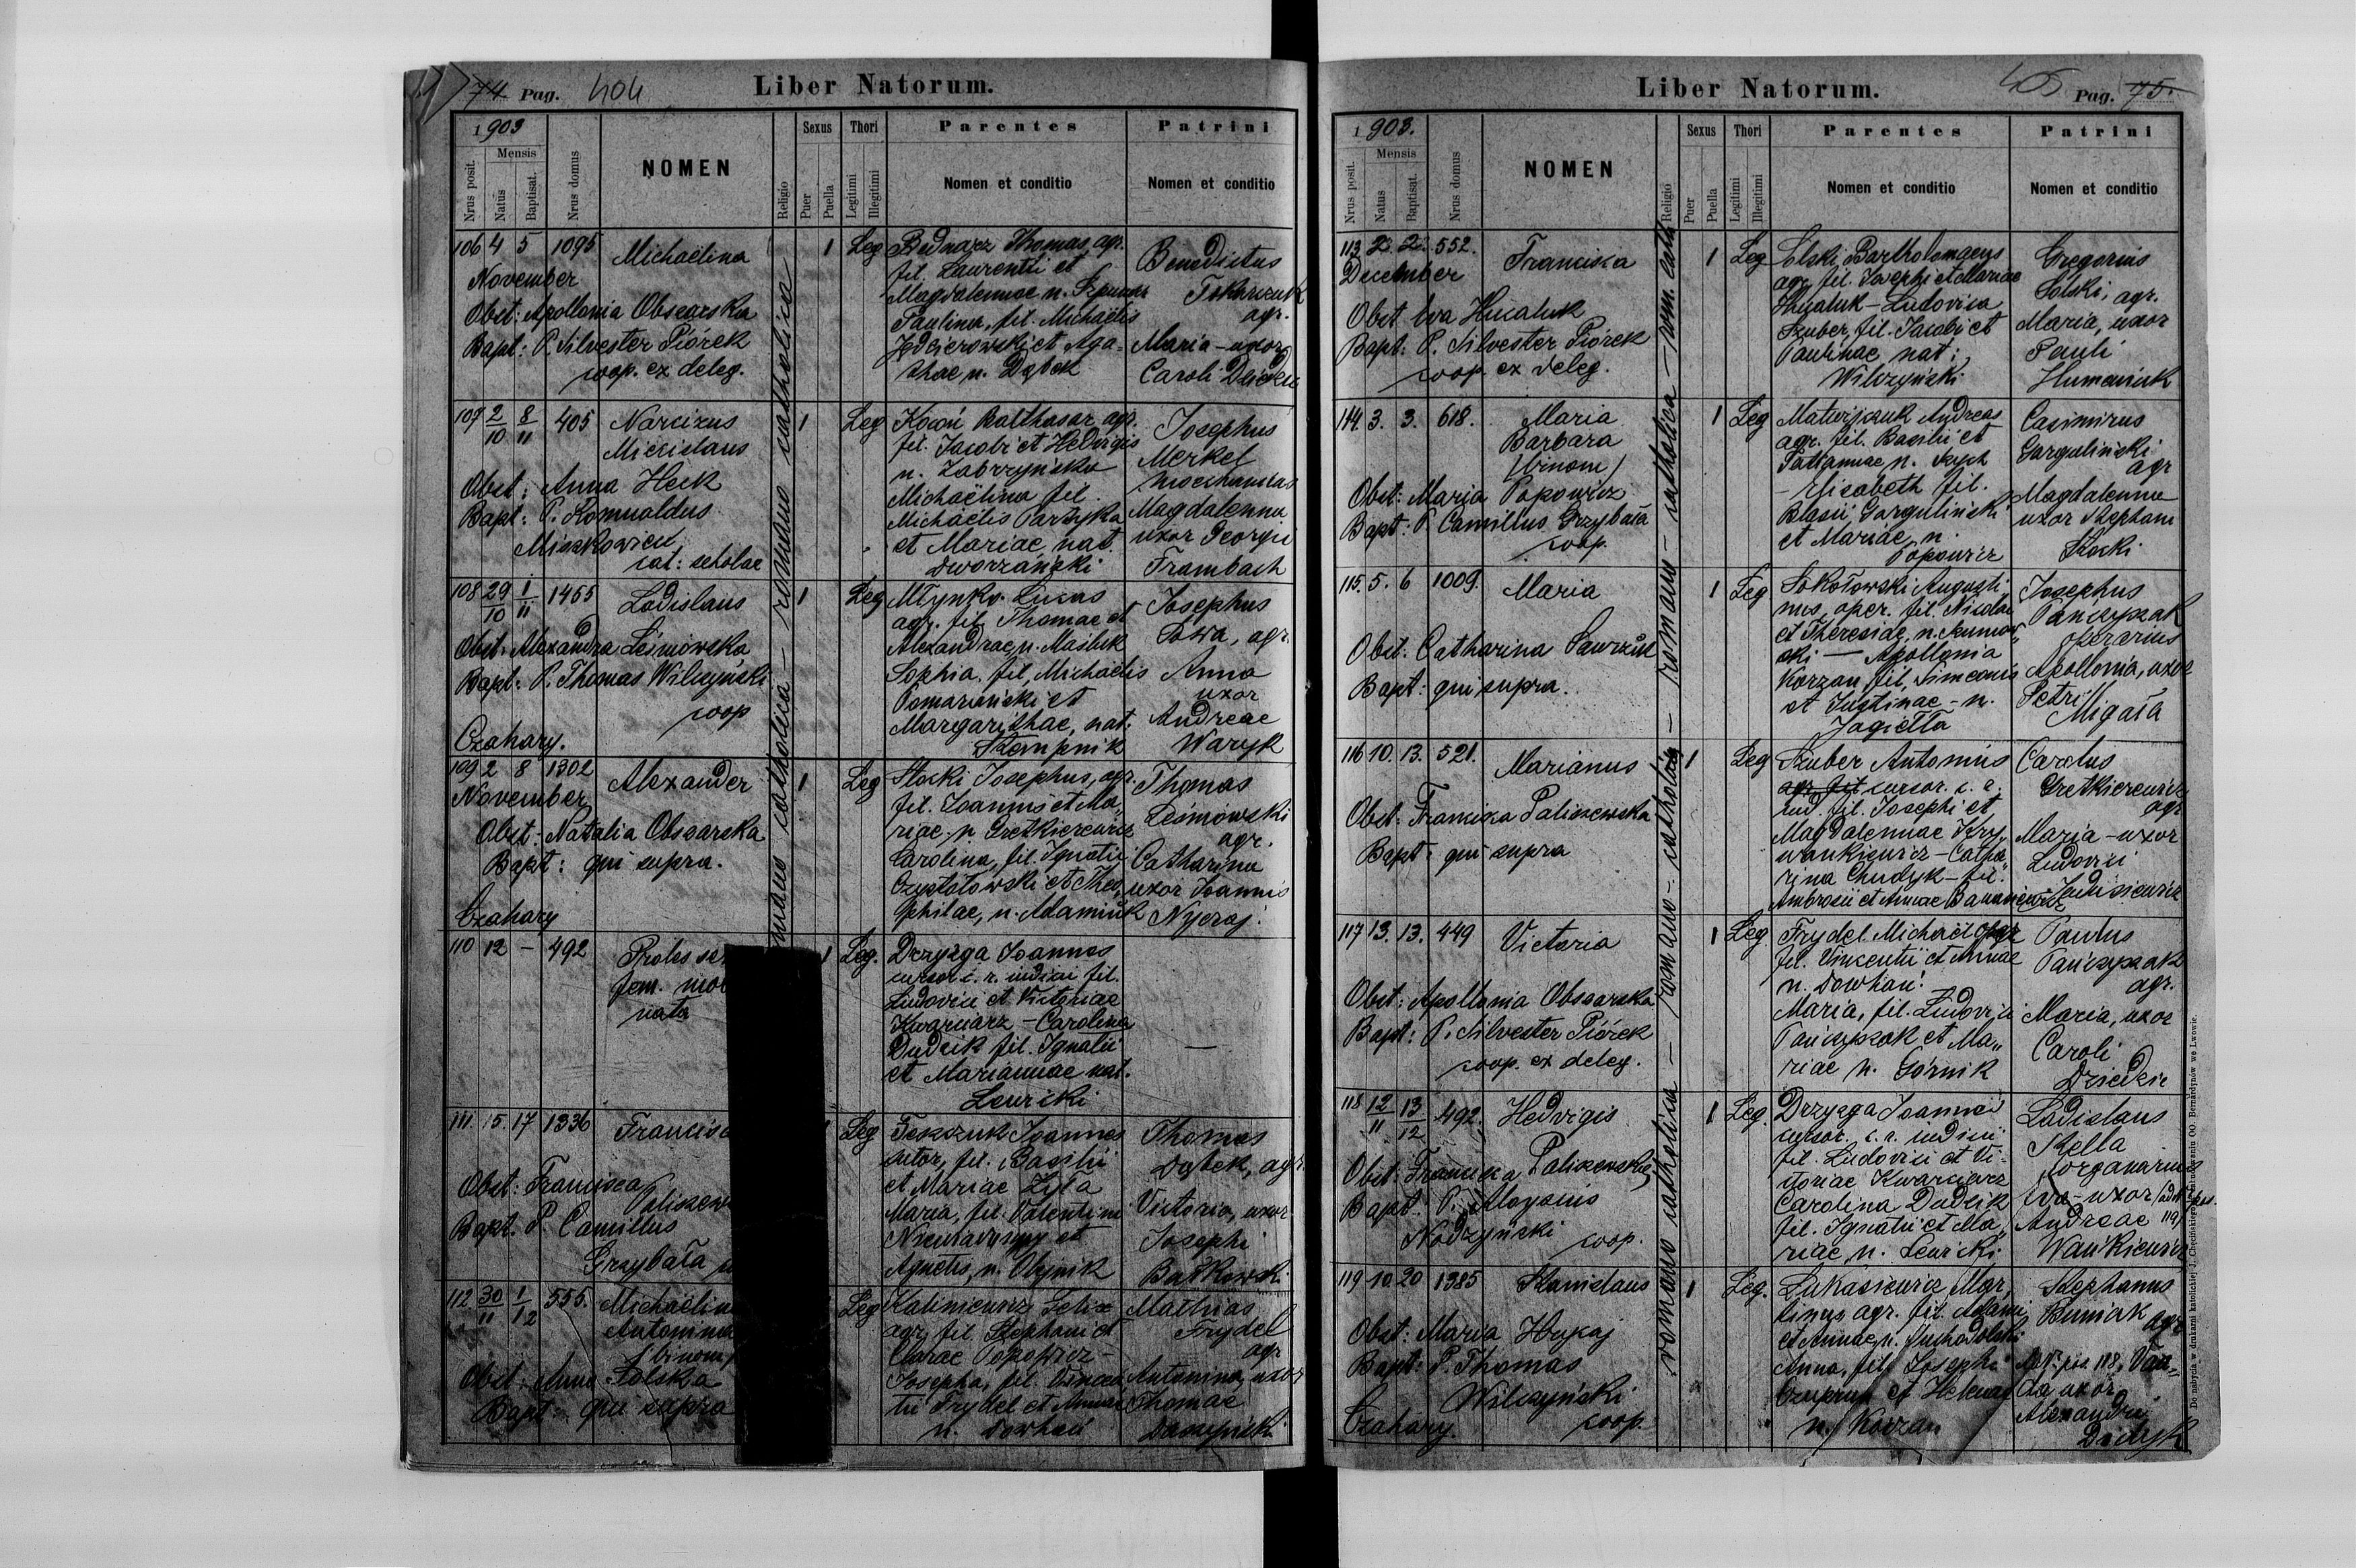 74 Pag. 404
Liber Natorum.
1903
Nrus posit.
Mensis
Natus
Baptisat.
Nrus domus
NOMEN
Religio
Sexus
Puer
Puella
Thori
Legitimi
Illegitimi
Parentes
Nomen et conditio
Patrini
Nomen et conditio
romano catholica
106 4 5 1095
November
Michaëlina
Obst: Apollonia Obsearska
Bapt: P. Silvester Piórek
coop. ex deleg.
1 Leg
Bednarz Thomas agr.
fil. Laurentii et
Magdalennae n.
Paulina, fil. Michaëlis
et Aga-
thae n. Dąbek
Benedictus
Tkaczuk
agr.
Maria - uxor
Caroli
107 2/10 8/11 405
Narcizus
Miecislaus
Obst: Anna Heck
Bapt: P. Romualdus
cat: scholae
1 Leg
Kocoń Balthasar agr.
fil. Jacobi et Hedvigis
n. Zabrzyńska
Michaëlina fil.
Michaëlis Partyka
et Mariae, nat.
Dworzański
Josephus
Merkel
Magdalenna
uxor Georgii
Frambach
108 29/10 1/11 1455
Ladislaus
Obst. Alexandra Leśniowska
Bapt. P. Thomas Wilczyński
coop
Czahary.
1 Leg
Młynko Lucas
agr. fil. Thomae et
Alexandrae, n. Maśluk
Sophia, fil. Michaëlis
Pomariański et
Margarithae, nat.
Skompnik
Josephus
Sowa, agr.
Anna
uxor
Andreae
Waryk
109 2 8 1302
November
Alexander
Obst: Natalia Obsearska
Bapt: qui supra.
Czahary
1 Leg
Stocki Josephus, agr.
fil. Joannis et Ma,,
riae, n. Gretkierewicz
Carolina, fil. Ignatii
Czystołowski et Theo,,
philae, n. Adamiuk
Thomas
Leśniowski
agr.
Catharina
uxor Joannis
Nyczaj.
110 12 - 492
Proles
fem.
nata
1 Leg.
Drzyzga Joannes
cursor c. r. iudicii fil.
Ludovici et Victoriae
Kwarciarz - Carolina
Dudzik fil. Ignatii
et Mariannae nat.
Lewicki
—
111. 15. 17 1336
Obst: Francisca
Bapt. P. Camillus
Grzybała
Leg
Joannes
sutor, fil. Basilii
et Mariae Zyła
Maria, fil. Valentini
et
Agnetis, n. Olejnik
Thomas
Dąbek, agr.
Victoria, uxor
Josephi
Bałkowski
112 30/11 1/12 555.
Michaëlina
Antonina
(binom)
Obst: Anna Solska
Bapt: qui supra
Leg
Kaliniewicz Felix
agr. fil. Stephani et
Clarae Popowicz -
Josepha, fil. Vincen
tii Frydel et Annae
n. Dowhań
Mathias
Frydel
agr
Antonina, uxor
Thomae
Daszyński
Liber Natorum.
405 Pag. 75.
1903.
Nrus posit.
Mensis
Natus
Baptisat.
Nrus domus
NOMEN
Religio
Sexus
Puer
Puella
Thori
Legitimi
Illegitimi
Parentes
Nomen et conditio
Patrini
Nomen et conditio
romano catholica - romano - catholica - romano - catholica - rom. cath
113 2. 2. 552.
December
Franciska
Obst. Eva Hucaluk
Bapt: P. Silvester Piórek
coop. ex deleg.
1 Leg
Solski Bartholomaeus
agr. fil. Josephi et Mariae
Hucaluk - Ludovica
Szuber, fil. Jacobi et
Paulinae nat:
Wilczyński
Gregorius
Solski, agr.
Maria, uxor
Pauli
Humeniuk
114. 3. 3. 618.
Maria
Barbara
(binom)
Obst: Maria Popowicz
Bapt: P. Camillus Grzybała
coop.
1 Leg
Matwijczuk Andreas
agr. fil. Basilii et
Tatiannae, n.
- Elisabeth fil.
Blasii Garguliński
et Mariae, n.
Popowicz
Casimirus
Garguliński
agr
Magdalenna
uxor Stephani
Stocki
115. 5. 6 1009.
Maria
Obst: Catharina Sawczuk
Bapt: qui supra.
1 Leg
Sokołowski Augusti,,
nus, oper. fil. Nicolai
et Theresiae, n.
ski — Apollonia
Korzan, fil. Simeonis
et Justinae - n.
Jagiełła
Josephus
Pańczyszak
operarius
Apollonia, uxor
Petri
Migała
116 10. 13. 521.
Marianus
Obst: Francisca Paliszewska
Bapt: qui supra
1 Leg
Szuber Antonius
agr. fil cursor. c. r.
iud. fil. Josephi et
Magdalennae Kry,,
wankiewicz - Catha,,
rina Chudyk - fil.
Ambrosii et Annae
Carolus
Gretkierewicz
agr
Maria - uxor
Ludovici
117 13. 13. 449
Victoria
Obst: Apollonia Obsearska
Bapt: P. Silvester Piórek
coop. ex deleg.
1 Leg.
Frydel Michaël agr
fil. Vincentii et Annae
n. Dowhań.
Maria, fil. Ludovici
Pańczyszak et Ma,,
riae n. Górnik
Paulus
Pańczyszak
agr.
Maria, uxor
Caroli
Dziedzic
118 12/11 13/12 492.
Hedvigis
Obst: Francisca Paliszewska
Bapt. P. Aloysius
Nodzyński coop.
1 Leg.
Drzyzga Joannes
cursor. c. r. iudicii
fil. Ludovici et Vi-
ctoriae Kwarciarz
Carolina Dudzik
fil. Ignatii et Ma,,
riae, n. Lewicki.
Ladislaus
Stella
organarius
Eva - uxor
Andreae
Wańkiewicz
119 10. 20 1385
Stanislaus
Obst: Maria Hukaj
Bapt: P. Thomas
Wilczyński
coop.
Czahary.
1 Leg.
Łukasiewicz Mar,,
tinus agr. fil. Adami
et Annae, n. Suchodolski
Anna, fil. Josephi
et Helenae
n. Korzan
Stephanus
Buniak agr
Ad N. pos. 118. Van,,
da uxor
Alexandri
Dudyk
Do nabycia w drukarni katolickiej J. Chęcińskiego w zabudowaniu OO. Bernardynów we Lwowie.